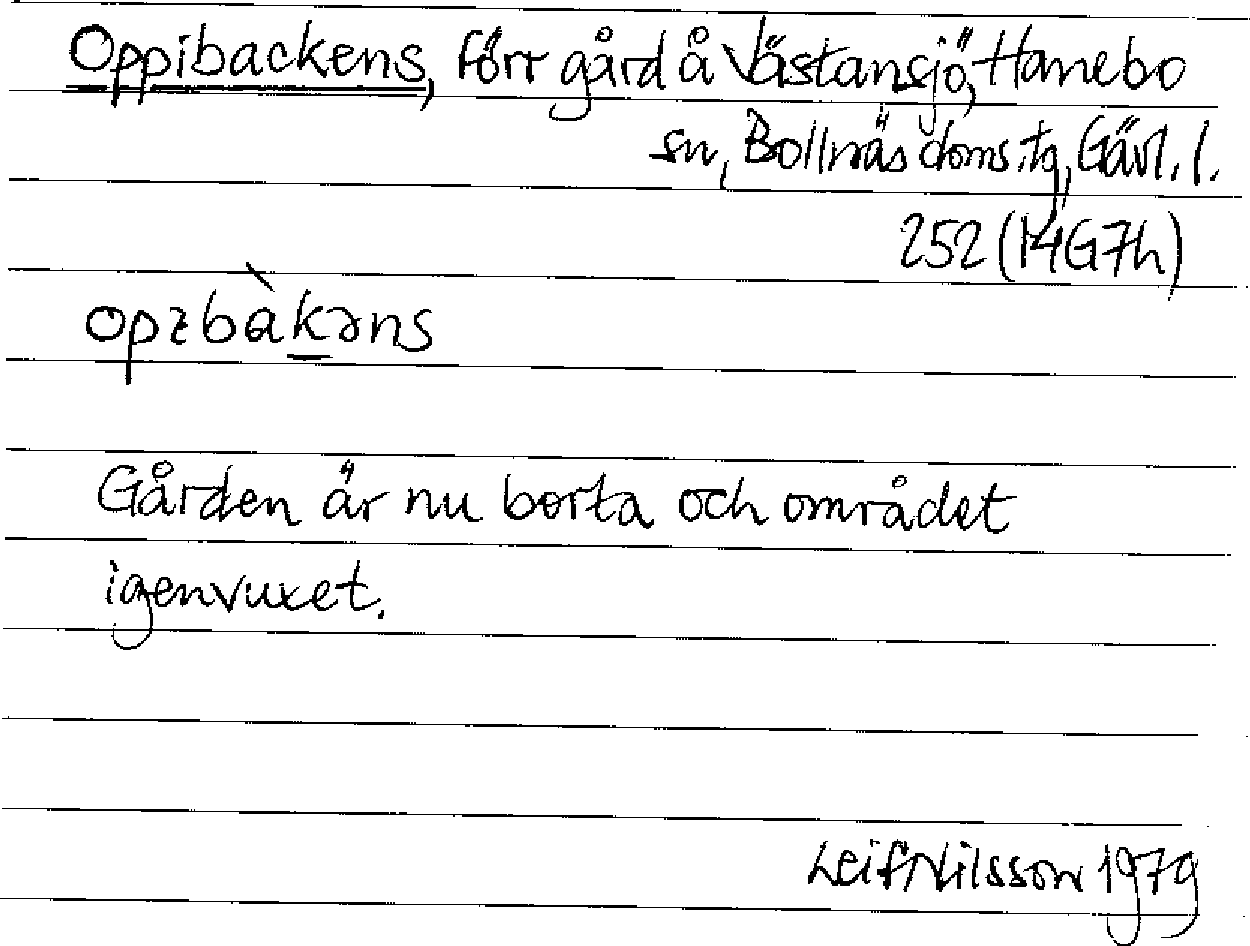 Oppibackens, förr gård å Västansjö, Hanebo
sn, Bollnäs doms.tg, Gävl. l.
252 (14G7h)
opɪbàkəns
Gården är nu borta och området
igenvuxet.
Leif Nilsson 1979